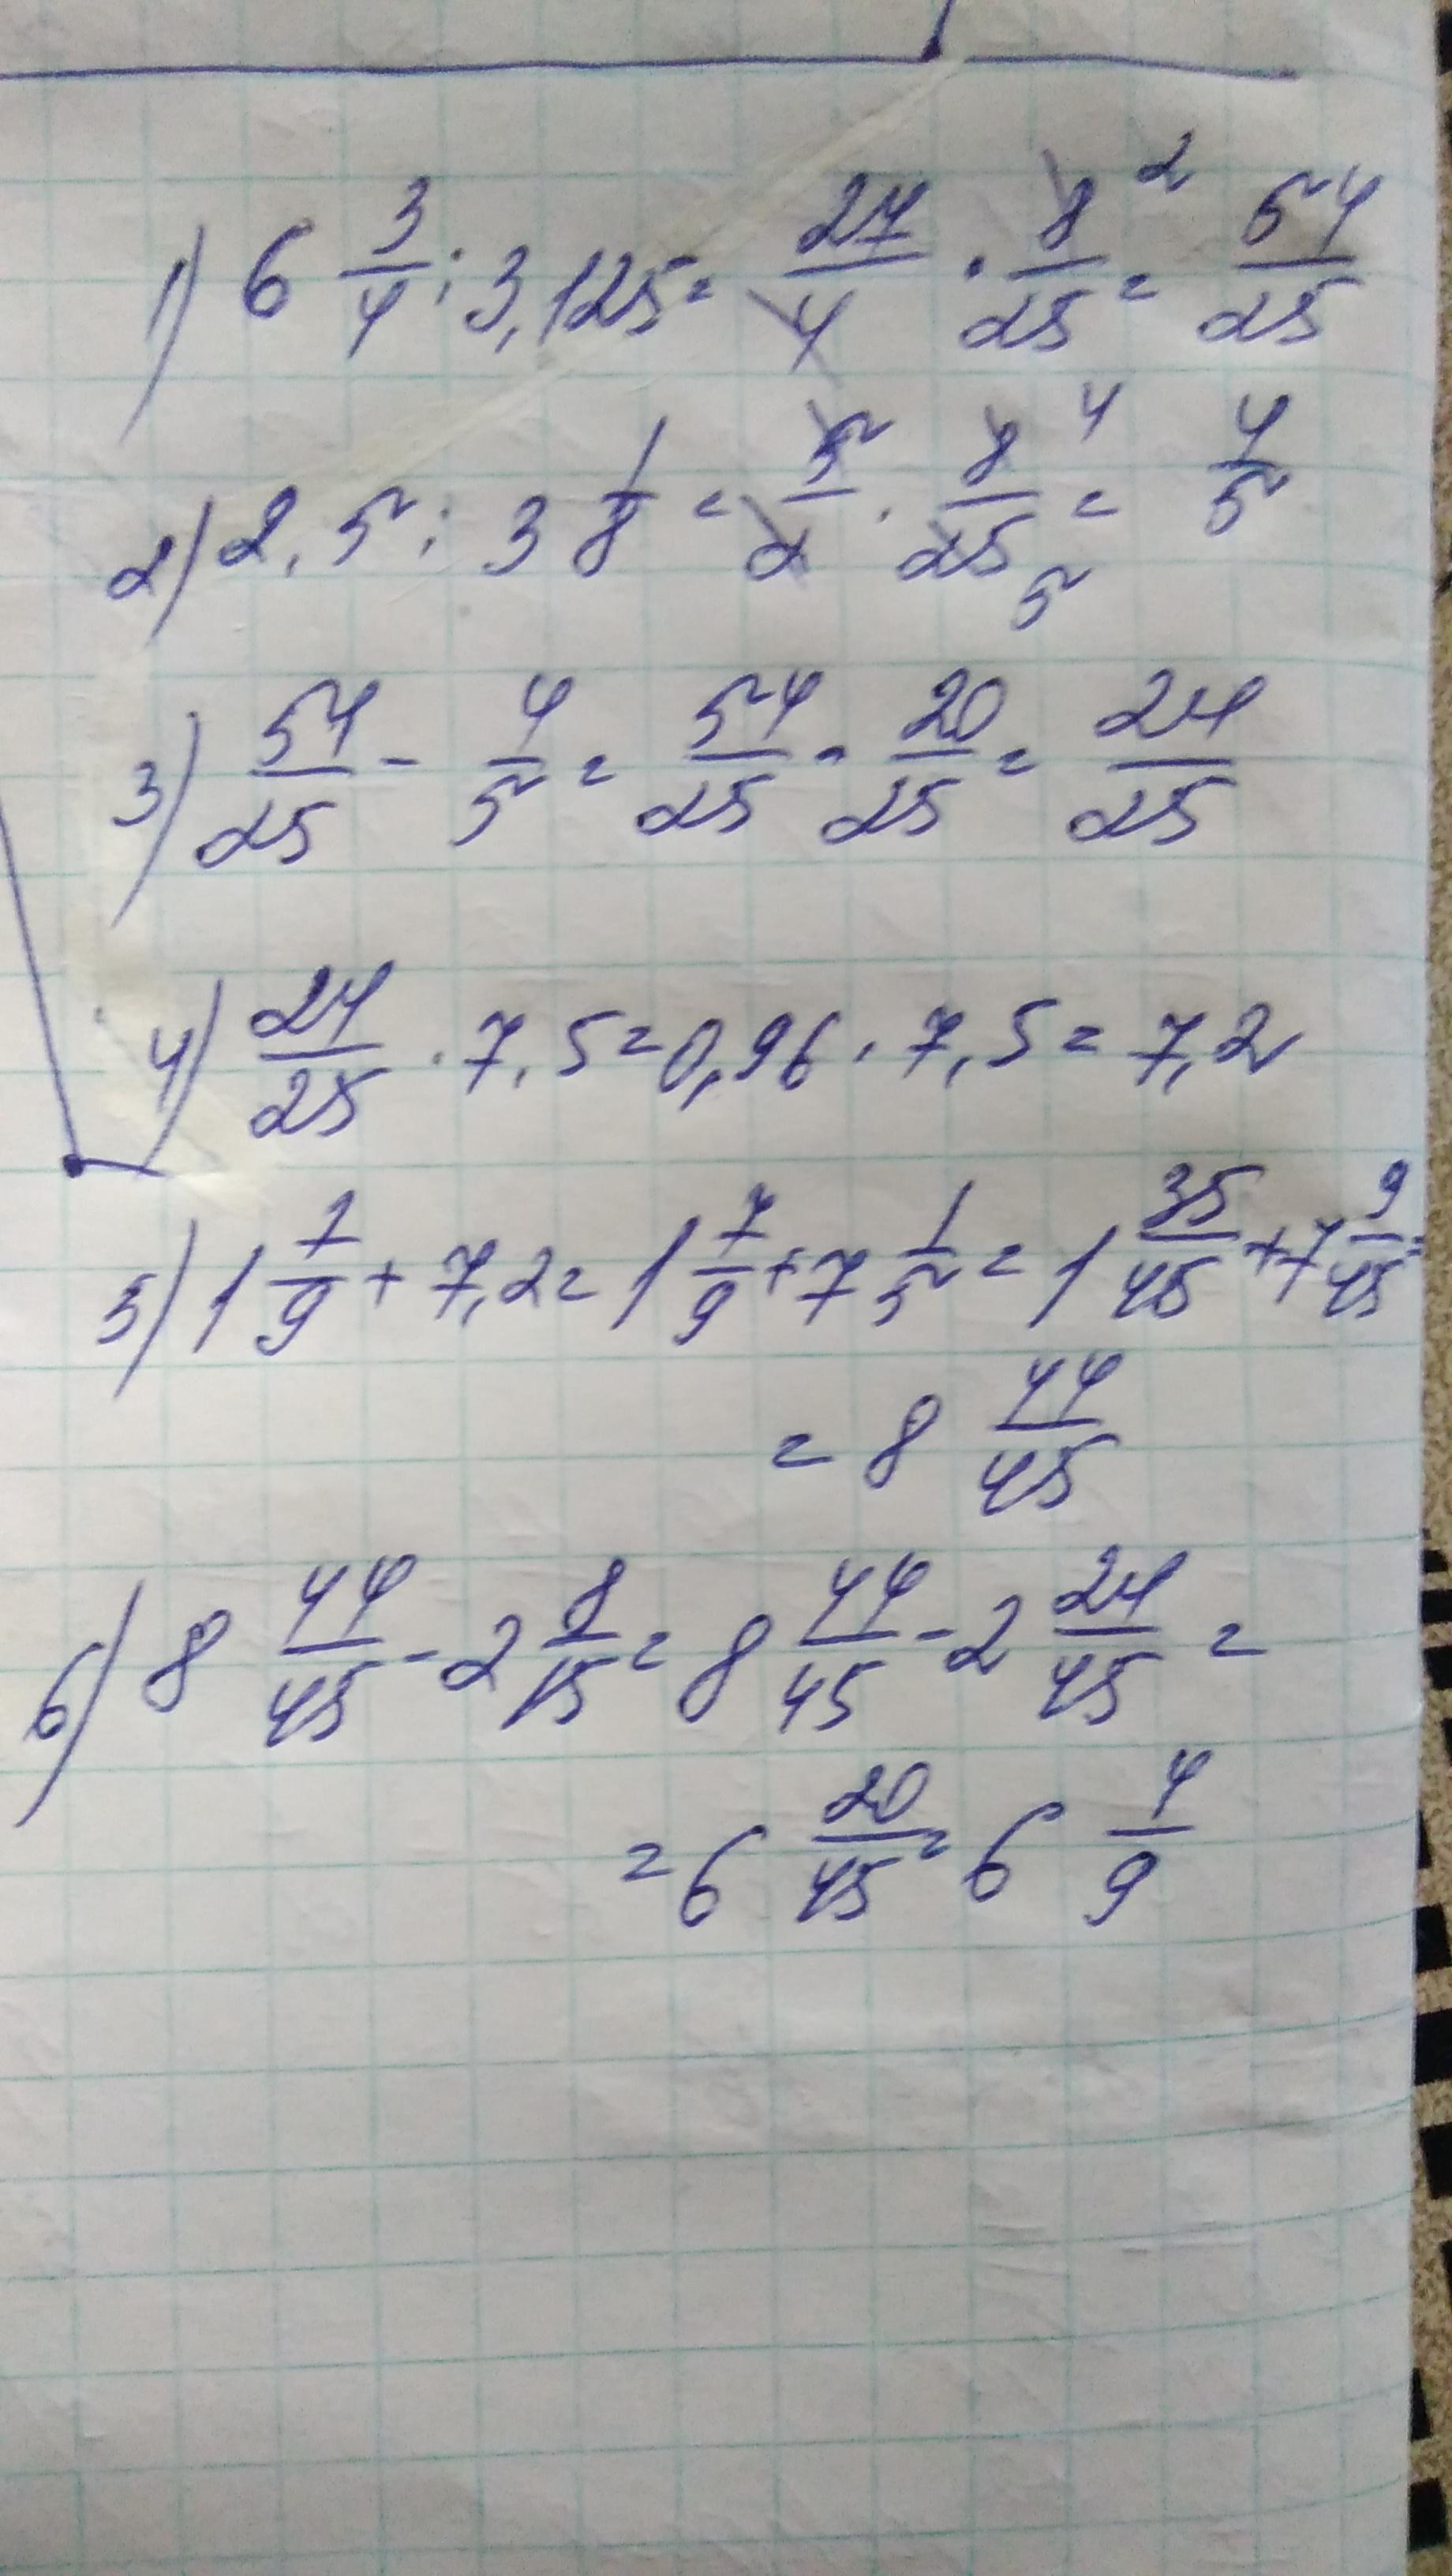 1) 6 3/4 : 3,125 = 27/4 · 8/25 2 = 54/25
2) 2,5 : 3 1/8 = 5/2 · 8/25 4 5 = 4/5
3) 54/25 - 4/5 = 54/25 - 20/25 = 24/25
4) 24/25 · 7,5 = 0,96 · 7,5 = 7,2
5) 1 7/9 + 7,2 = 1 7/9 + 7 1/5 = 1 35/45 + 7 9/45 =
= 8 44/45
6) 8 44/45 - 2 8/15 = 8 44/45 - 2 24/45 =
= 6 20/45 = 6 4/9